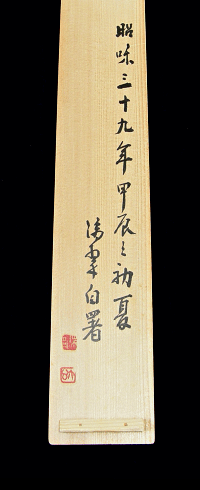 昭和三十九年甲辰之初夏
白署